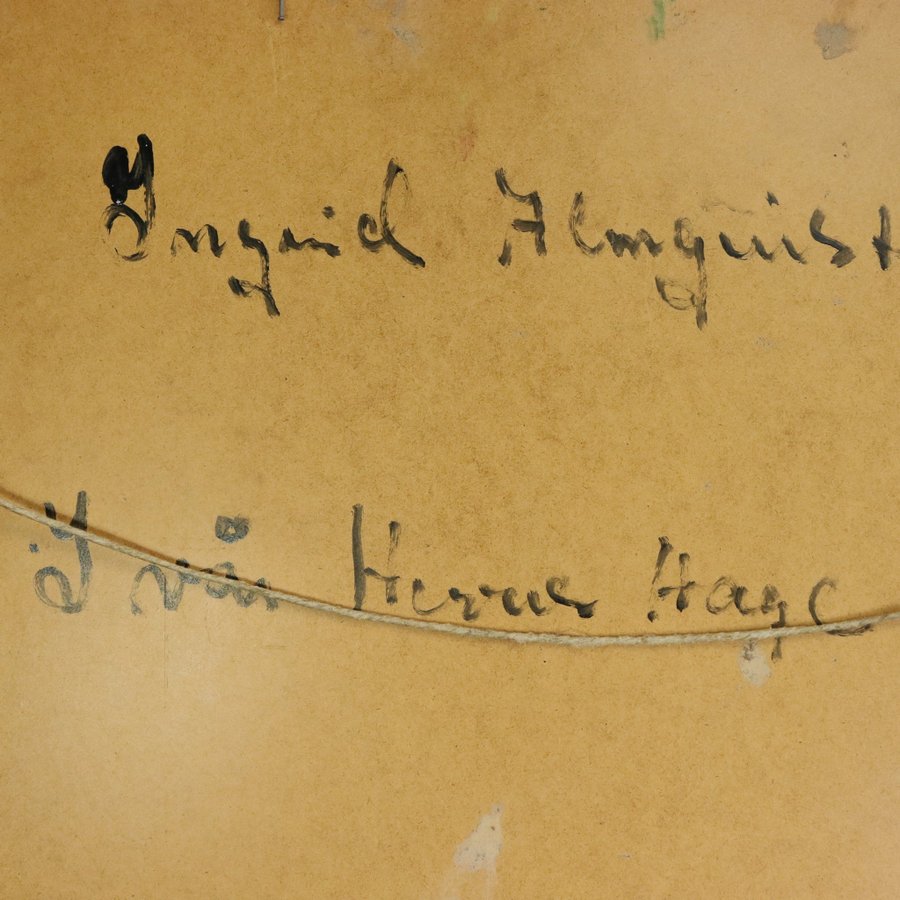 Ingrid Almquist
I vår Herres Hage